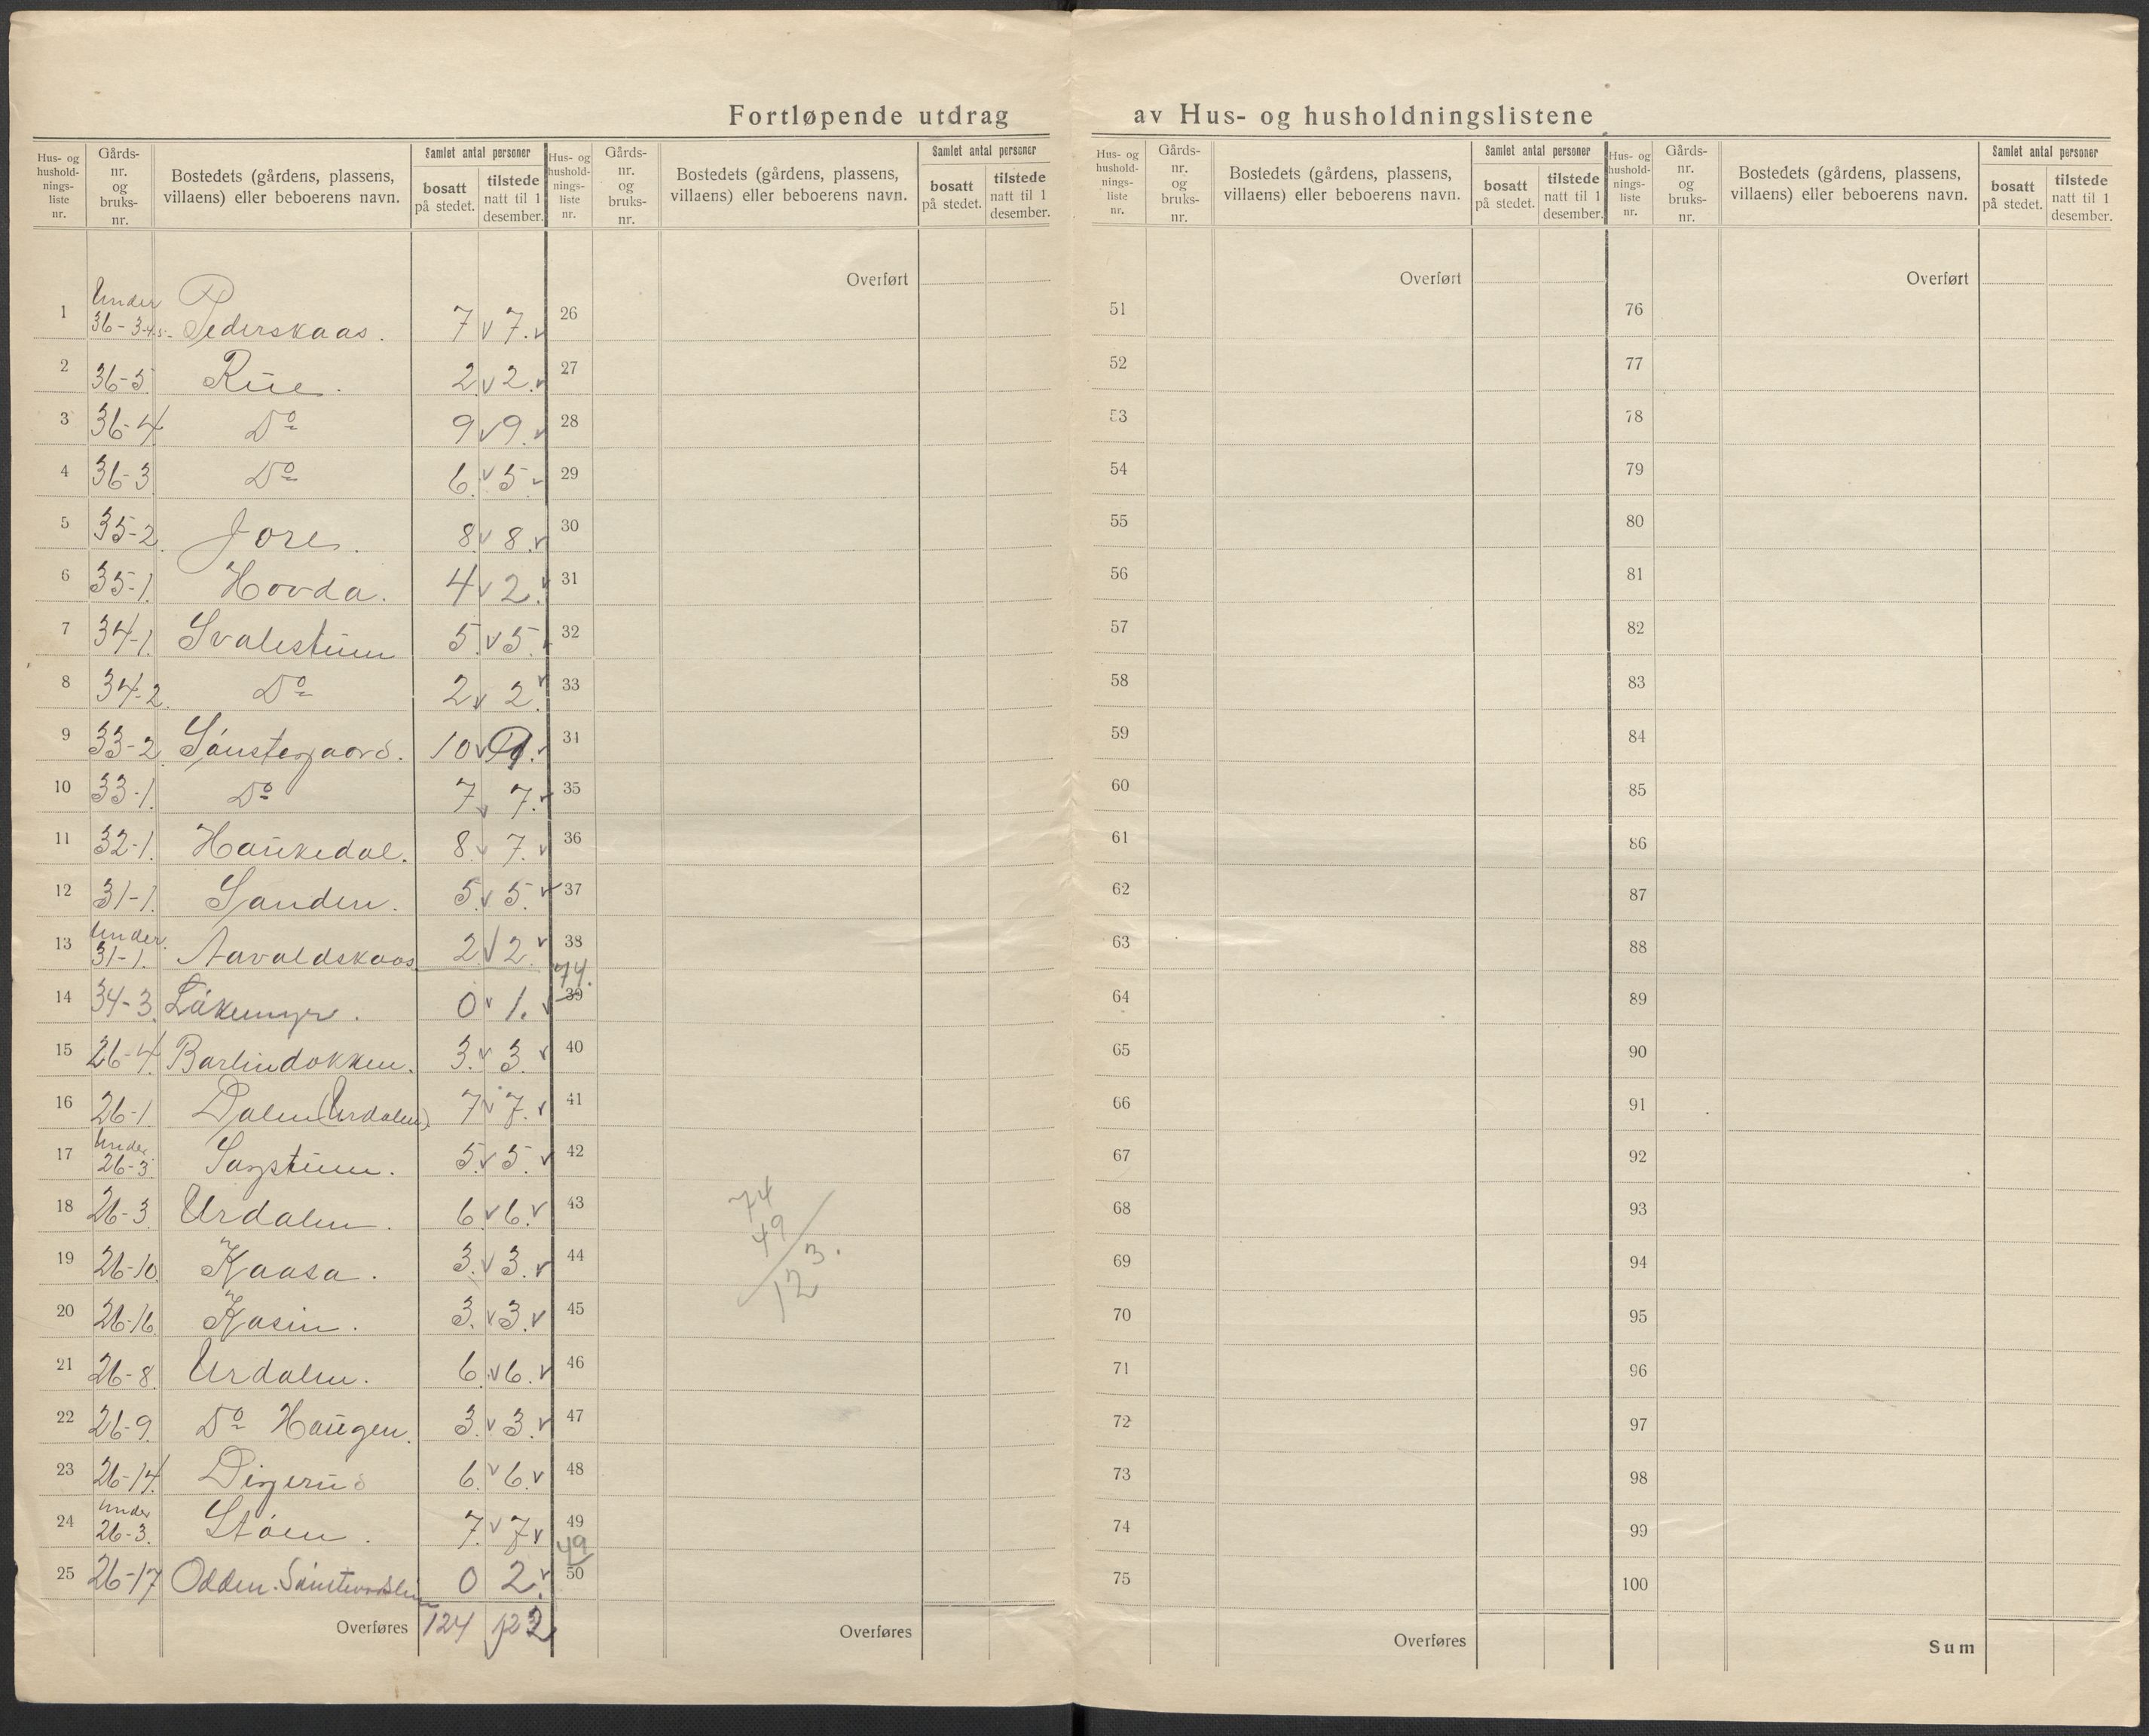 Fortløpende utdrag av Hus- og husholdningslistene
Hus- og husholdnings-liste nr. Gårds-nr. og bruks-nr. Bostedets (gårdens, plassens, villaens) eller beboerens navn. Samlet antal personer bosatt på stedet. tilstede natt til 1 desember.
Hus- og husholdnings-liste nr. Gårds-nr. og bruks-nr. Bostedets (gårdens, plassens, villaens) eller beboerens navn. Samlet antal personer bosatt på stedet. tilstede natt til 1 desember.
Hus- og husholdnings-liste nr. Gårds-nr. og bruks-nr. Bostedets (gårdens, plassens, villaens) eller beboerens navn. Samlet antal personer bosatt på stedet. tilstede natt til 1 desember.
Hus- og husholdnings-liste nr. Gårds-nr. og bruks-nr. Bostedets (gårdens, plassens, villaens) eller beboerens navn. Samlet antal personer bosatt på stedet. tilstede natt til 1 desember.
Overført Overført Overført
1 Under 36-3-4-5- Pederskaas. 7 v 7. v 26 51 76
2 36-5 Rue. 2 v 2. v 27 52 77
3 36-4 Do 9 v 9. v 28 53 78
4 36-3 Do 6. v 5 v 29 54 79
5 35-2. Jore. 8 v 8. v 30 55 80
6 35-1. Hovda. 4 v 2. v 31 56 81
7 34-1. Svalestuen 5. v 5. v 32 57 82
8 34-2. Do 2 v 2. v 33 58 83
9 33-2. Sønstegaard. 10 v v 34 59 84
10 33-1. Do 7 v 7. v 35 60 85
11 32-1. Haukedal. 8. v 7. v 36 61 86
12 31-1. Sanden. 5. v 5. v 37 62 87
13 Under 31-1. Aavaldskaas 2 v 2. v 38 63 88
74.
14 34-3. Låkemyr. 0 v 1. v 39 64 89
15 26-4. Barlindokken. 3. v 3. v 40 65 90
16 26-1. Dalen (Urdalen) 7 v 7. v 41 66 91
17 Under 26-3. Sagstuen. 5. v 5. v 42 67 92
18 26-3. Urdalen. 6. v 6. v 43 74 68 93
49
19 26-10. Kaasa. 3. v 3. v 44 123. 69 94
20 26-16. Kasin. 3. v 3. v 45 70 95
21 26-8. Urdalen. 6. v 6. v 46 71 96
22 26-9. Do Haugen. 3. v 3. v 47 72 97
23 26-14. Digerud 6. v 6. v 48 73 98
24 Under 26-3. Støen. 7. v 7 v 49 74 99
49
25 26-17 Odden. 0 2. v 50 75 100
Overføres 124 122 Overføres Overføres Sum